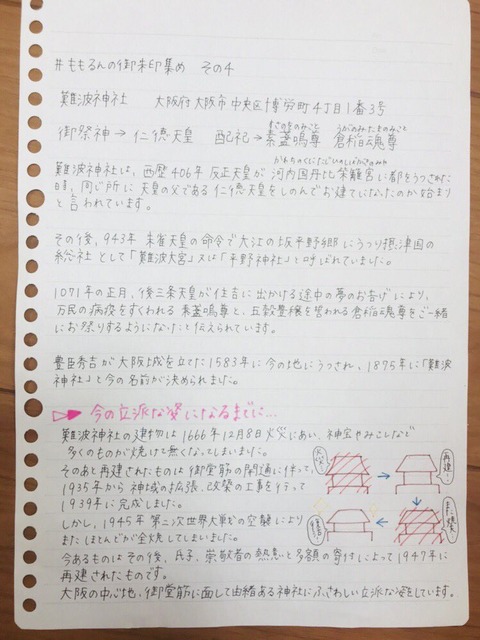 #ももるんの御朱印集め その4
難波神社 大阪府大阪市中央区博労町4丁目1番3号
すさのおのみこと うがのみたまのみこと
御祭神→仁徳天皇 配祀→素盞嗚尊 倉稲魂尊
難波神社は、西歴406年 反正天皇が 河内国丹比柴籬宮に都をうつされた
時、同じ所に 天皇の父である仁徳天皇をしのんでお建てになたのが始まり
と言われています。
その後、943年 朱雀天皇の命令で大江の坂平野郷にうつり摂津国の
総社として「難波大宮」又は「平野神社」と呼ばれていました。
1071年の正月、後三条天皇が住吉に出かける途中の夢のお告げにより、
万民の病疫をすくわれる 素盞嗚尊と、五穀豊穣を司われる倉稲魂尊をご一緒
にお祭りするようになったと伝えられています。
豊臣秀吉が大阪城を立てた1583年に今の地にうつされ、1875年に「難波
神社」と今の名前が決められました。
今の立派な姿になるまでに…
難波神社の建物は1666年12月8日火災にあい、神宝やみこしなど
多くのものが焼けて無くなってしまいました。
そのあと再建されたものは御堂筋の開通に伴って、
1935年から神域の拡張、改築の工事を行って
1939年に完成しました。
しかし、1945年 第二次世界大戦での空襲により
またほとんどが全焼してしまいました。
今あるものはその後、氏子、崇敬者の熱意と多額の寄付によって1947年に
再建されたものです。
大阪の中心地、御堂筋に面して由緒ある神社にふさわしい立派な姿をしています。
火災…
再建!
また焼…